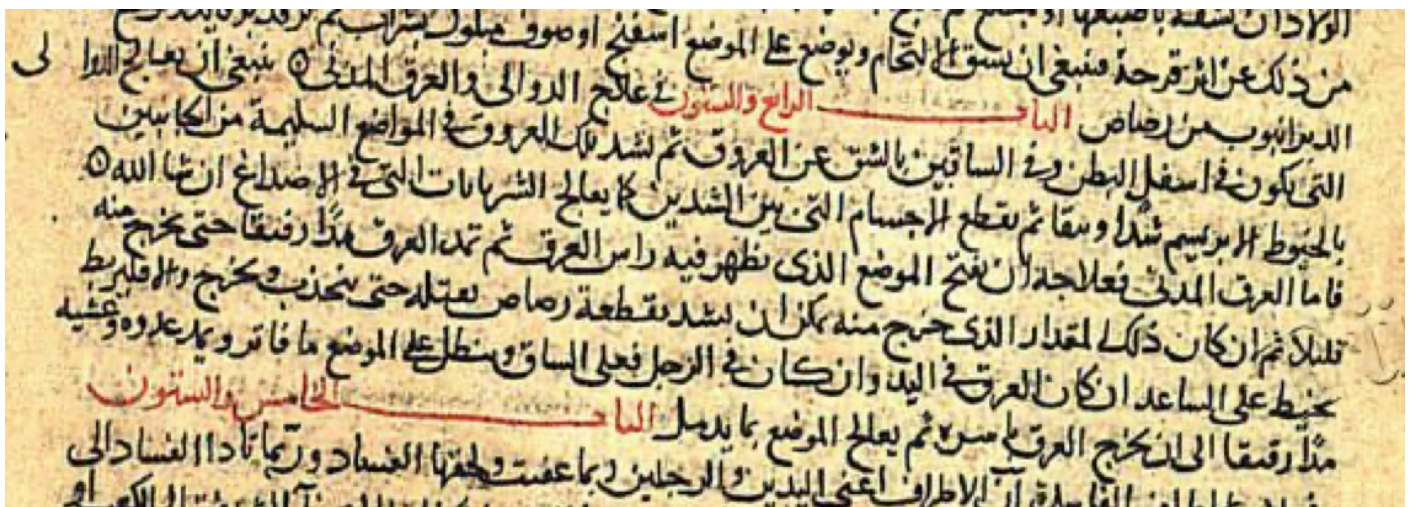 من ذلك عن اثر قرحة فينبغي ان يشق الالتحام ويوضع على الموضع اسفنج او صوف مبلول بشراب ثم
الدبر انبوب من رصاص الباب الرابع والستون في علاج الدوالي والعرق المدني ينبغي ان يعالج الدوا لى
التي يكون في اسفل البطن وفي الساقين بالشق عن العروق ثم تشد تلك العروق في المواضع السليمة من الجانبين
بالخيوط الابريسم شدا وثيقا ثم يقطع الاجسام التي بين الشدين كما يعالج الشريانات التي في الاصداغ ان شا الله
فاما العرق المدني فعلاجه ان يفتح الموضع الذي يظهر فيه راس العرق ثم تمد العرق مدا رفيقا حتى يخرج منه
قليلا ثم ان كان ذلك المقدار الذي خرج منه يمكن ان يشد بقطعة رصاص بعتله حتى ينجذب ويخرج والا فليربط
بخيط على الساعد ان كان العرق في اليد وان كان في الرجل فعلى الساق وينطل على الموضع ما فاتر ويمد غدوه وعشيه
مدا رفيقا الى ان يخرج العرق باسره ثم يعالج الموضع بما يدمل الباب الخامس والستون
الاطراف اعني اليدين والرجلين ربما عفنت ولحقها الفساد وربما تادا الفساد الى